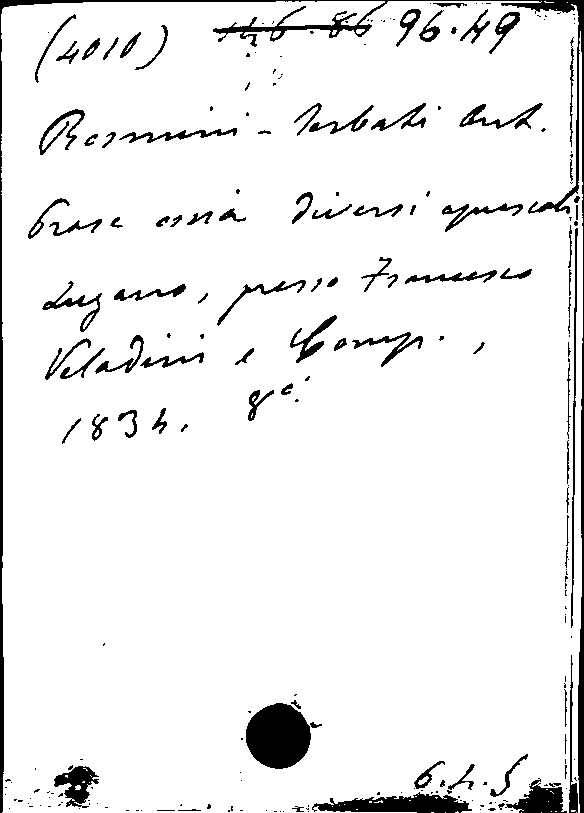 (4010) 96.49
Rosmini - Serbati Ant.
Prose ossia diversi opuscoli
Lugano, presso Francesco
Veladini e Comp.,
1834. 8º.
6.4.5